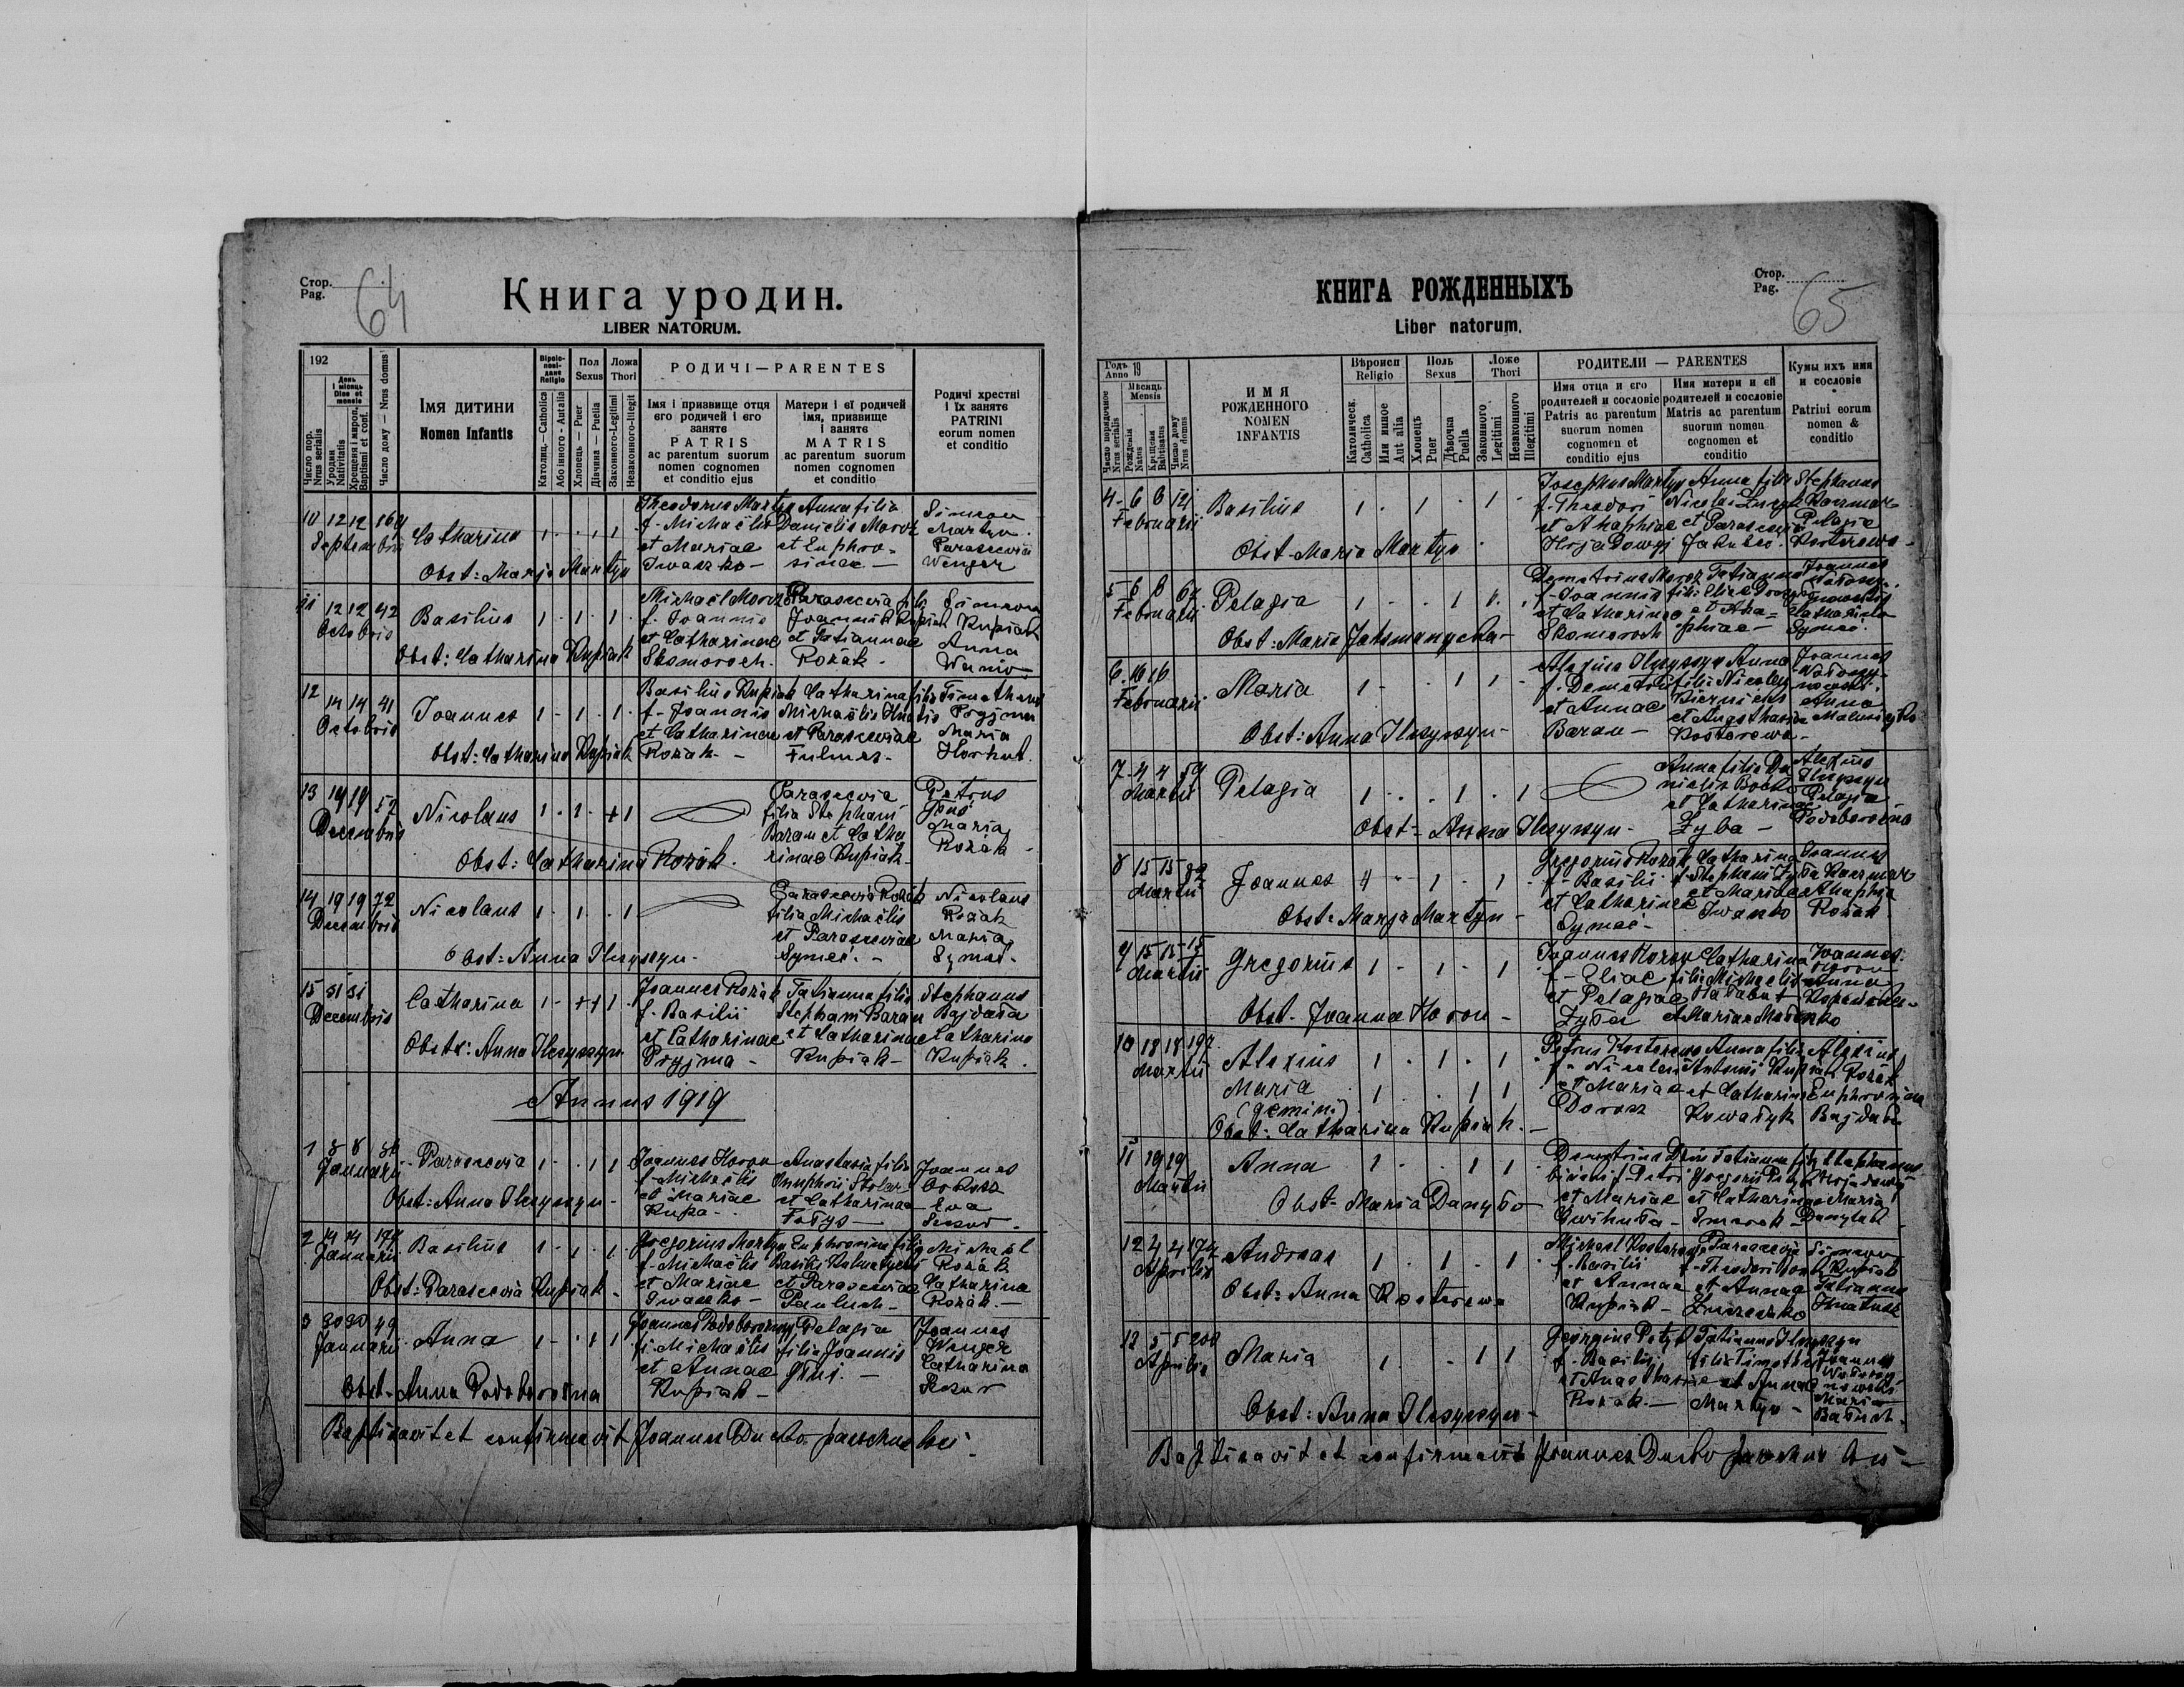 Стор.
Pag.
64
Книга уродин.
LIBER NATORUM.
192
Число пор.
Nrus serialis
День
і місяць
Dies et
mensis
Уродин
Nativitatis
Хрещеня і миров.
Baptismi et conf.
Число дому — Nrus domus
ІМЯ ДИТИНИ
Nomen Infantis
Віроіспо-
відане
Religio
Католиц.—Catholica
Або іншого - Aut alia
Пол
Sexus
Хлопець — Puer
Дівчина — Puella
Ложа
Thori
Законного-Legitimi
Незаконного-Illegit
РОДИЧІ—PARENTES
Імя і призвище отця
єго родичей і єго
занятє
PATRIS
ac parentum suorum
nomen cognomen
et conditio ejus
Матери і єї родичей
імя, призвище
і занятє
MATRIS
ac parentum suorum
nomen cognomen
et conditio
Родичі хрестні
і їх занятє
PATRINI
eorum nomen
et conditio
10 12 12 164
Septembris
Catharina
1 · · 1 1
Theodorus Martyn
f. Michaëlis
et Mariae
Iwaszko -
Anna filia
Danielis Moroz
et Euphro-
sinae -
Simeon
Martyn.
Parascevia
Wenger
Obst: Marja Martyn
11 12 12 42
Octobris
Basilius
1 · 1 · 1
Michaël Moroz
f. Joannis
et Catharinae
Skomoroch.
Parascevia filia
Joannis Kupiak
et Tatiannae
Rożak.
Simeon
Kupiak
Anna
Waniw
Obst: Catharina Kupiak
12 14 14 41
Octobris
Joannes
1 - 1 · 1
Basilius Kupiak
f. Joannis
et Catharinae
Rożak -
Catharina filia
Michaëlis
et Parasceviae
Fulmes -
Timotheus
Pryjma
Maria
Horhut.
Obst: Catharina Kupiak
13 19 19 52
Decembris
Nicolaus
1 - 1 - + 1
Parascevia
filia Stephani
Baran et Catha
rinae Kupiak -
Petrus
Maria
Rożak -
Obst: Catharina Rożak.
14 19 19 72
Decembris
Nicolaus
1 · 1 · 1
Parascevia Rożak
filia Michaëlis
et Parasceviae
Symeć. -
Nicolaus
Rożak
Maria
Symeć.
Obst: Anna Ilczyszyn.
15 31 31
Decembris
Catharina
1 - + 1 1
Joannes Rożak
f. Basilii
et Catharinae
Pryjma -
Tatianna filia
Stephani Baran
et Catharinae
Kupiak -
Stephanus
Bajdała
Catharina
Kupiak.
Obstr: Anna Ilczyszyn
Annus 1919
1 8 8
Januarii
Parascevia
1 · · 1 1
Joannes Horon
f. Michaëlis
et Mariae
Kupa -
Anastasia filia
Onuphrii Stolar
et Catharinae
Fotys -
Joannes
Eva
Obst: Anna Ilczyszyn -
2 14 14
Januarii
Basilius
1 - 1 · 1
Gregorius Martyn
f. Michaëlis
et Mariae
Iwaszko -
Euphrosina filia
Basilii
et Parasceviae
Pauluch -
Michaël
Rożak
Catharina
Rożak. -
Obst: Parascevia Kupiak -
3 30 30 49
Januarii
Anna
1 - · 1 1
Joannes Podoborożnyj
f. Michaëlis
et Annae
Kupiak -
Pelagia
filia Joannis
Joannes
Wenger
Catharina
Obst - Anna Podoborożna
Baptisavit et confirmavit Joannes Ducko parochus loci.
КНИГА РОЖДЕННЫХЪ
Liber natorum.
Стор.
Pag.
65
Годъ
Anno 19
Число порядочное
Nrus serialis
Мѣсяць
Mensis
Рожденія
Natus
Крещенія
Babtisatus
Число дому
Nrus domus
ИМЯ
РОЖДЕННОГО
NOMEN
INFANTIS
Вѣроисп
Religio
Католическ.
Catholica
Или инное
Aut alia
Поль
Sexus
Хлопець
Puer
Дѣвочка
Puella
Ложе
Thori
Законного
Legitimi
Незаконного
Illegitimi
РОДИТЕЛИ — PARENTES
Имя отца и его
родителей и сословіе
Patris ac parentum
suorum nomen
cognomen et
conditio ejus
Имя матери и ей
родителей и сословіе
Matris ac parentum
suorum nomen
cognomen et
conditio
Кумы ихъ имя
и сословіе
Patrini eorum
nomen &
conditio
4 - 6 6 121
Februarii
Basilius
1 · 1 · 1
Josephus Martyn
f. Theodori
et Ahaphiae
Hojdowyj
Anna filia
Nicolai
et Parasceviae
Jakubeć.
Stephanus
Kaczmar
Pelagia
Kosterewa -
Obst - Maria Martyn
5 - 8 8 62
Februarii
Pelagia
1 - · 1 1
Demetrius Moroz
f. Joannis
et Catharinae
Skomoroch
Tatianna
filia Eliae
et Aha=
phiae -
Joannes
Catharina
Symeć.
Obst: Maria
6. 16 16
Februarii
Maria
1 - · 1 1 -
Alexius Ilczyszyn
f. Demetrii
et Annae
Baran -
Anna
filia Nicolai
et Anasthasiae
Kosterewa -
Joannes
Anna
Obst: Anna Ilczyszyn -
7 - 4 4 59
Martii
Pelagia
1 · · 1 · 1
Anna filia Da
nielis
et Catharinae
Zyba -
Alexius
Ilczyszyn
Pelagia
Podoborożna
Obst - Anna Ilczyszyn -
8 15 15 82
Martii
Joannes
1 - 1 · 1
Gregorius Rożak
f. Basilii
et Catharinae
Symeć -
Catharina
f. Stephani Zyba
et Mariae
Iwaszko
Joannes
Kaczmar
Ahaphia
Rożak
Obst - Marja Martyn -
9 15 15 15
Martii
Gregorius
1 - 1 - 1
Joannes Horon
f - Eliae
et Pelagiae
Zyba
Catharina
filia Michaelis
et Mariae
Joannes
Horon
Anna
Obst - Joanna Horon -
10 18 18 197
Martii
Alexius
1 · 1 · 1
Maria
1 · 1 1
(gemini)
Petrus Kosterewa
f - Nicolai
et Mariae
Dorosz
Anna filia
Antonii Kupiak
et Catharinae
Kowalyk
Alexius
Rożak
Euphrosina
Bajdała
Obst: Catharina Kupiak. -
11 19 19
Martii
Anna
1 · · 1 1
Demetrius
f. Petri
et Mariae
Tatianna filia
Gregorii
et Catharinae
Stephanus
Hojdowyj
Maria
Obst - Maria
12 4 4 192
Aprilis
Andreas
1 · 1 · 1
Michael Kosterewa
f. Basilii
et Annae
Kupiak -
Parascevia
f. Theodori
et Annae
Simeon
Kupiak
Tatianna
Obst: Anna Kosterewa
13 5 5 200
Aprilis
Maria
1 · · 1 1
Georgius
f. Basilii
et Anasthasiae
Rożak. -
Tatianna Ilczyszyn
filia Timothei
et Annae
Martyn -
Joannes
Maria
Obst: Anna Ilczyszyn -
Baptisavit et confirmavit Joannes Ducko parochus loci -